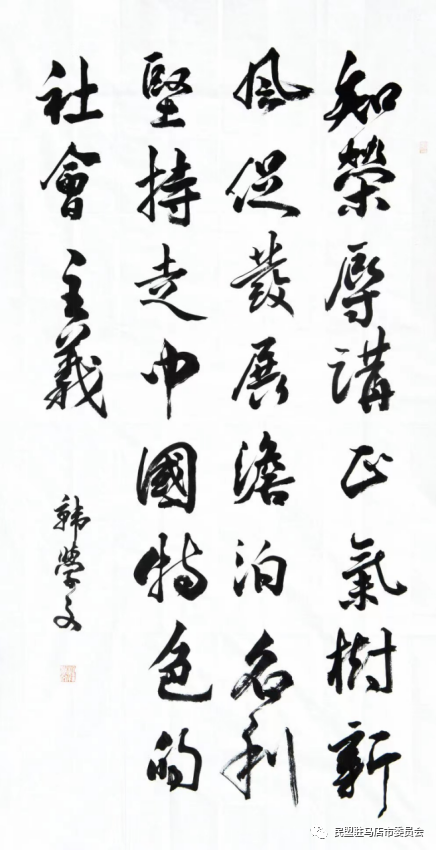 知榮辱講正氣樹新
風促發展澹泊名利
堅持走中國特色的
社會主義
韩學文
民盟驻马店市委员会